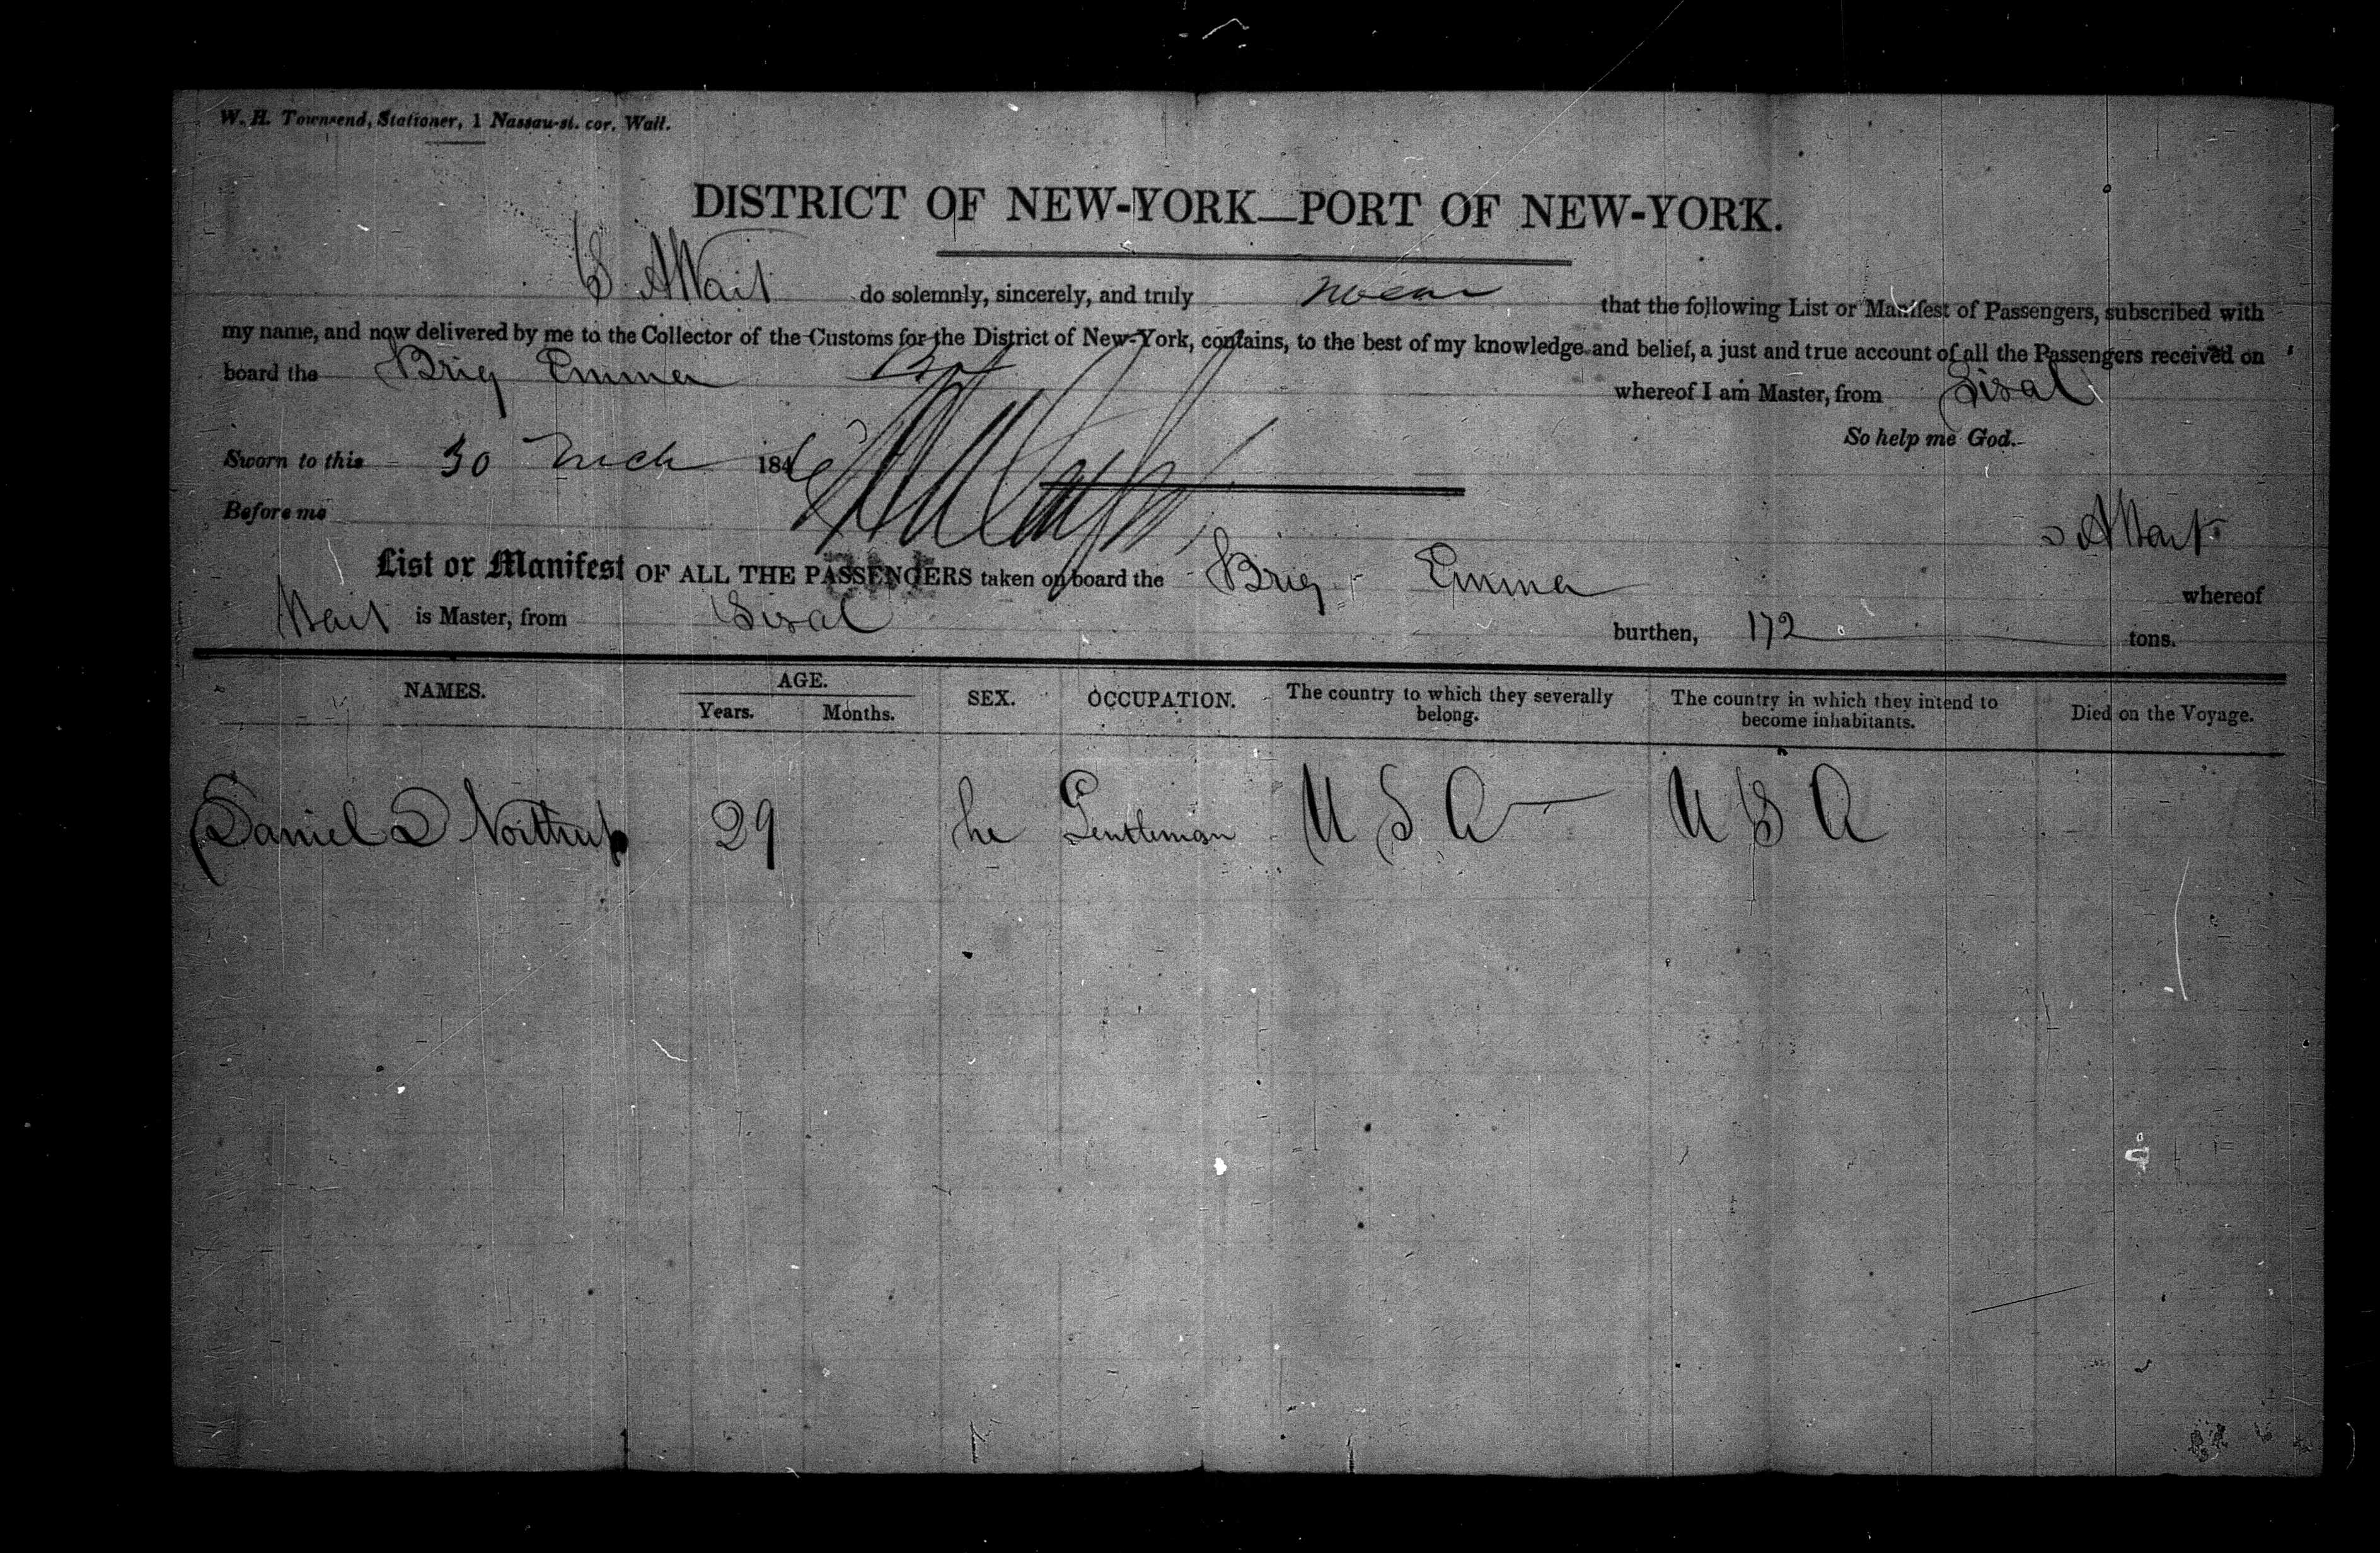 W. H. Townsend, Stationer, 1 Nassau-st. cor. Wall.
DISTRICT OF NEW-YORK—PORT OF NEW-YORK.
S A Wait do solemnly, sincerely, and truly swear that the following List or Manifest of Passengers, subscribed with
my name, and now delivered by me to the Collector of the Customs for the District of New-York, contains, to the best of my knowledge and belief, a just and true account of all the Passengers received on
board the Brig Emma whereof I am Master, from Sisal
So help me God.
Sworn to this 30 Mch 184
Before me
S A Wait
List or Manifest OF ALL THE PASSENGERS taken on board the Brig Emma whereof
Wait is Master, from Sisal burthen, 172 tons.
NAMES. AGE. Years. Months. SEX. OCCUPATION. The country to which they severally belong. The country in which they intend to become inhabitants. Died on the Voyage.
Daniel D Northrup 29 he Gentleman U S A U S A